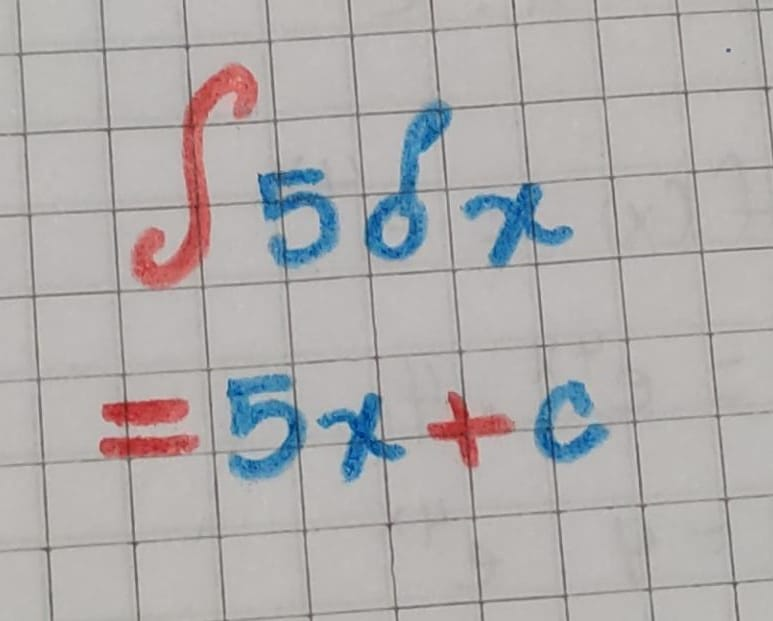 ∫ 5 δ x
= 5x + c